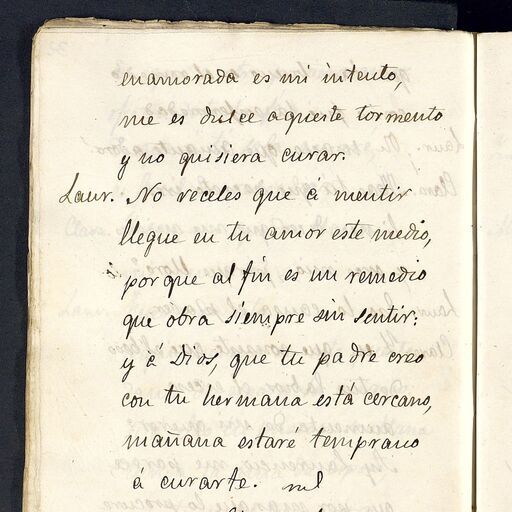 enamorada es mi intento,
me es dulce aqueste tormento
y no quisiera curar.
Laur. No receles que á mentir
llegue en tu amor este medio,
porque al fin es un remedio
que obra siempre sin sentir:
y á Dios, que tu padre creo
con tu hermana está cercano,
mañana estare temprano
a curarte.